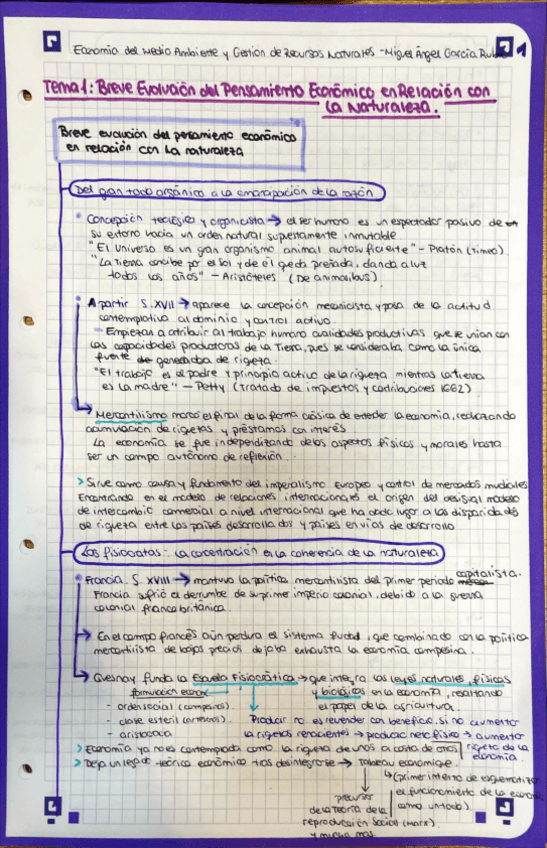 Economía del Medio Ambiente y Gestión de Recursos Naturales - Miguel Ángel García Rubio 1
Tema 1: Breve Evolución del Pensamiento Económico en Relación con
la Naturaleza.
Breve evolución del pensamiento económico
en relación con la naturaleza
Del gran todo orgánico a la emancipación de la razón
Concepción teológica y organicista → el ser humano es un espectador pasivo de
su entorno hacia un orden natural supuestamente inmutable
"El Universo es un gran organismo animal autosuficiente" - Platón (Timeo).
"La tierra concibe por el sol y de él queda preñada, dando a luz
todos los años" - Aristóteles (De animalibus).
A partir S. XVII → aparece la concepción mecanicista y pasa de la actitud
contemplativa al dominio y control activo.
- Empiezan a atribuir al trabajo humano cualidades productivas que se unían con
las capacidades productoras de la Tierra, pues se consideraba como la única
fuente generadora de riqueza.
"El trabajo es el padre y principio activo de la riqueza mientras la tierra
es la madre" - Petty (Tratado de impuestos y contribuciones 1662)
Mercantilismo marca el final de la forma clásica de entender la economía, realizando
acumulación de riquezas y préstamos con interés.
La economía se fue independizando de los aspectos físicos y morales hasta
ser un campo autónomo de reflexión.
> Sirve como causa y fundamento del imperalismo Europeo y control de mercados mundiales
Encontrando en el modelo de relaciones internacionales el origen del desigual modelo
de intercambio comercial a nivel internacional que ha dado lugar a las disparidades
de riqueza entre los países desarrollados y países en vías de desarrollo
Los fisiócratas - la concentración en la coherencia de la naturaleza
Francia S. XVIII → mantuvo la política mercantilista del primer periodo capitalista.
Francia sufrió el derrumbe de su primer imperio colonial, debido a la guerra
colonial francobritánica.
En el campo francés aún perdura el sistema feudal, que combinado con la política
mercantilista de bajos precios dejaba exhausta la economía campesina.
Quesnay funda la Escuela Fisiocrática → que integra las leyes naturales, físicas
y biológicas en la economía, resaltando
el papel de la agricultura.
formulación econ
- orden social (campesinos).
- clase estéril (artesanos).
- aristocracia
Producir no es revender con beneficio, si no aumentar
la riquezas renacientes → producto neto físico → aumento
riqueza de la
economía
> Economía ya no es contemplada como la riqueza de unos a costa de otros
> Deja un legado teórico económico tras desintegrarse → Tableau économique.
(primer intento de esquematizar
el funcionamiento de la economía
como un todo)
precursor
de la teoría de la
reproducción social (Marx)
y mucha más